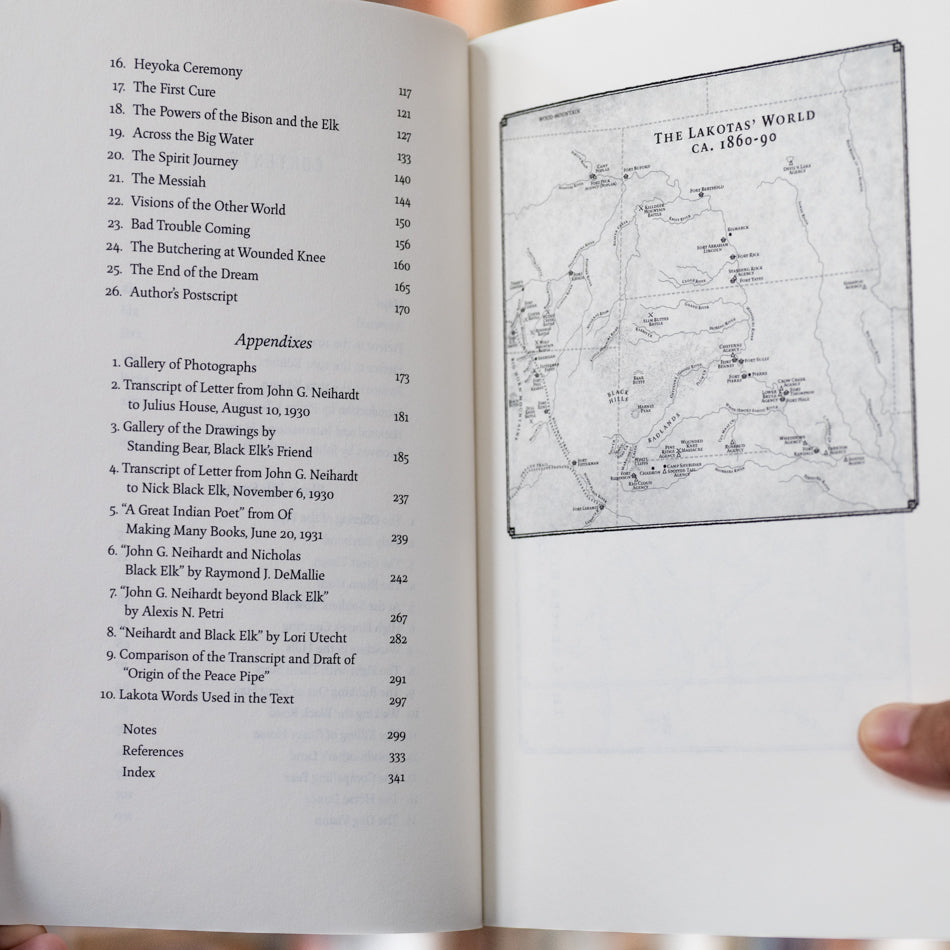 16. Heyoka Ceremony 117
17. The First Cure 121
18. The Powers of the Bison and the Elk 127
19. Across the Big Water 133
20. The Spirit Journey 140
21. The Messiah 144
22. Visions of the Other World 150
23. Bad Trouble Coming 156
24. The Butchering at Wounded Knee 160
25. The End of the Dream 165
26. Author's Postscript 170
Appendixes
1. Gallery of Photographs 173
2. Transcript of Letter from John G. Neihardt
to Julius House, August 10, 1930 181
3. Gallery of the Drawings by
Standing Bear, Black Elk's Friend 185
4. Transcript of Letter from John G. Neihardt
to Nick Black Elk, November 6, 1930 237
5. “A Great Indian Poet” from Of
Making Many Books, June 20, 1931 239
6. “John G. Neihardt and Nicholas
Black Elk” by Raymond J. DeMallie 242
7. “John G. Neihardt beyond Black Elk”
by Alexis N. Petri 267
8. “Neihardt and Black Elk” by Lori Utecht 282
9. Comparison of the Transcript and Draft of
“Origin of the Peace Pipe” 291
10. Lakota Words Used in the Text 297
Notes 299
References 333
Index 341
WOOD MOUNTAIN
THE LAKOTAS' WORLD
CA. 1860-90
DEVIL'S LAKE
AGENCY
FORT BUFORD
FORT BERTHOLD
KILLDEER
MOUNTAIN
BATTLE
BISMARCK
FORT ABRAHAM
LINCOLN
FORT RICE
STANDING ROCK
AGENCY
FORT YATES
SLIM BUTTES
BATTLE
CHEYENNE
AGENCY
FORT
BENNETT
FORT SULLY
FORT
PIERRE
PIERRE
BEAR
BUTTE
BLACK
HILLS
HARNEY
PEAK
CROW CREEK
AGENCY
LOWER
BRULE
AGENCY
FORT
THOMPSON
FORT HALE
BADLANDS
WOUNDED
KNEE
MASSACRE
PINE
RIDGE
AGENCY
ROSEBUD
AGENCY
CAMP SHERIDAN
SPOTTED TAIL
AGENCY
CHADRON
FORT
ROBINSON
RED CLOUD
AGENCY
FORT
FETTERMAN
FORT LARAMIE